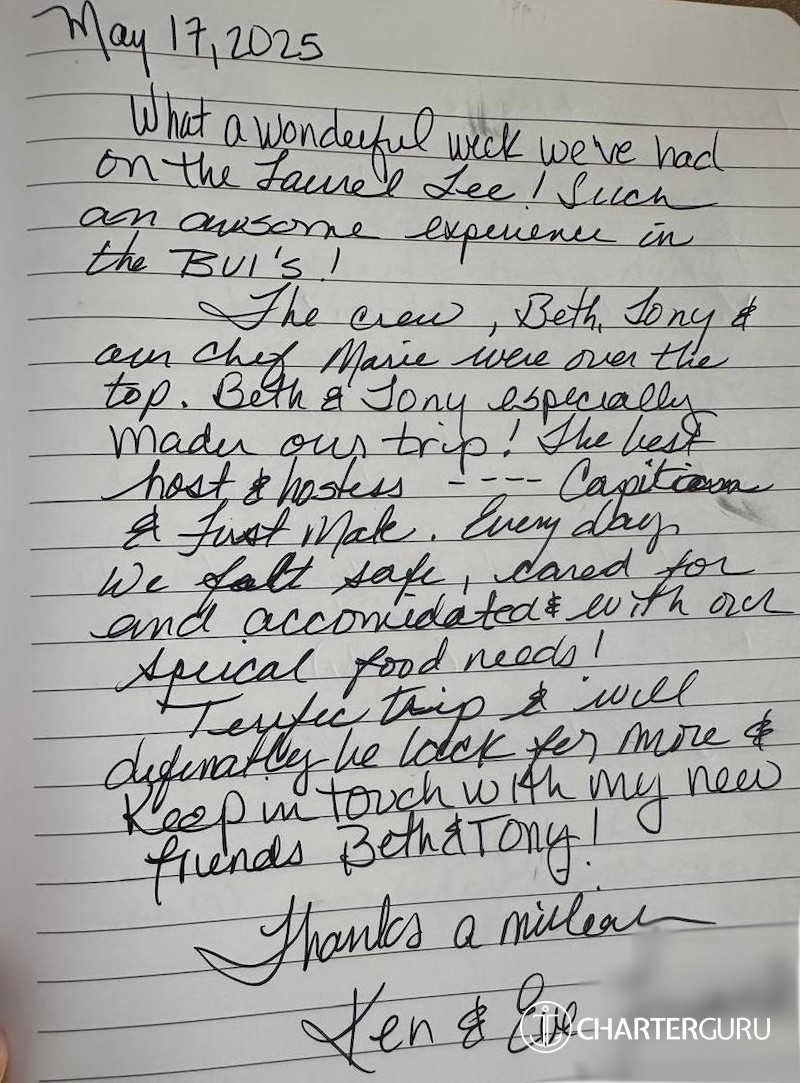 May 17, 2025
What a wonderful week we've had
on the Laurel Lee! Such
an awsome experience in
the BVI's!
The crew, Beth, Tony &
our chef Marie were over the
top. Beth & Tony especially
made our trip! The best
host & hostess ---- Capitian
& First Mate. Every day
We felt safe, cared for
and accomidated & with our
speical food needs!
Terrific trip & will
definatlly be back for more &
Keep in touch with my new
friends Beth & Tony!
Thanks a million
Ken & Eve
CHARTERGURU